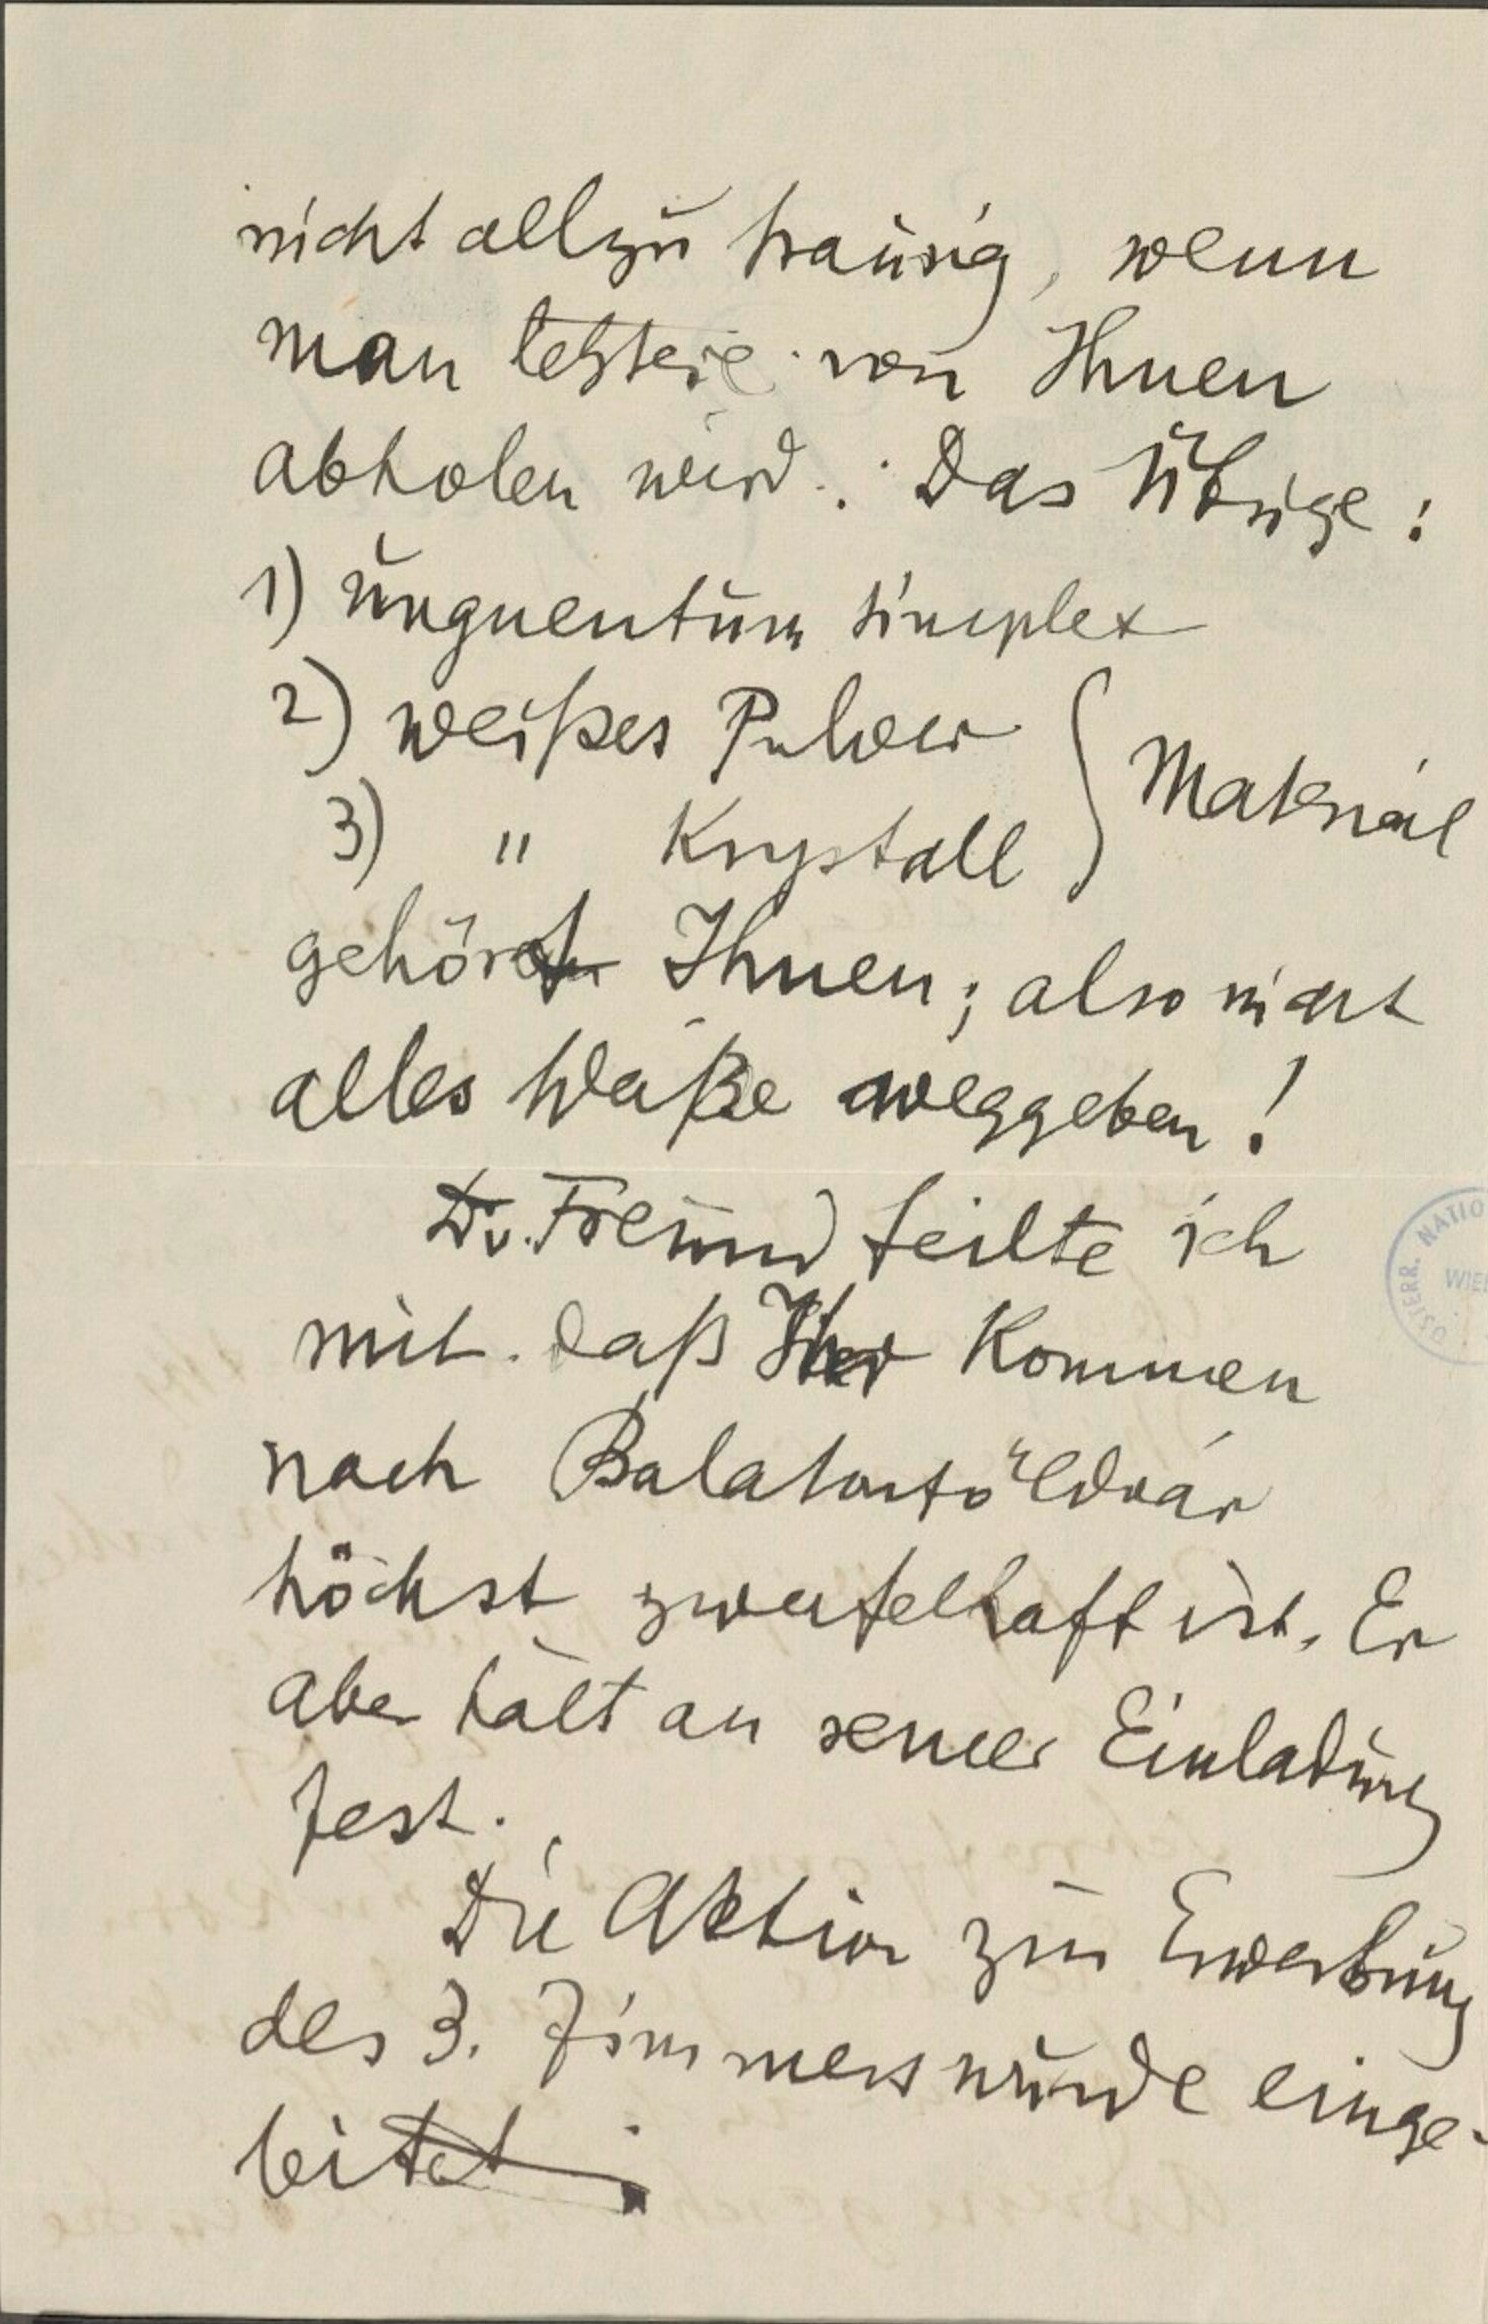 nicht allzu traurig, wenn
man letztere von Ihnen
abholen wird. Das Übrige:
1) unguentum simplex
2) weißes Pulver } Material
3) " Krystall
gehört Ihnen; also nicht
alles Weiße weggeben!
Dr. Freund teilte ich
mit. daß Ihr Kommen
nach Balatonföldvár
höchst zweifelhaft ist. Er
aber hält an seiner Einladung
fest.
Die Aktion zur Erwerbung
des 3. Zimmers wurde einge-
leitet.
ÖSTERR. NATIO
WIE